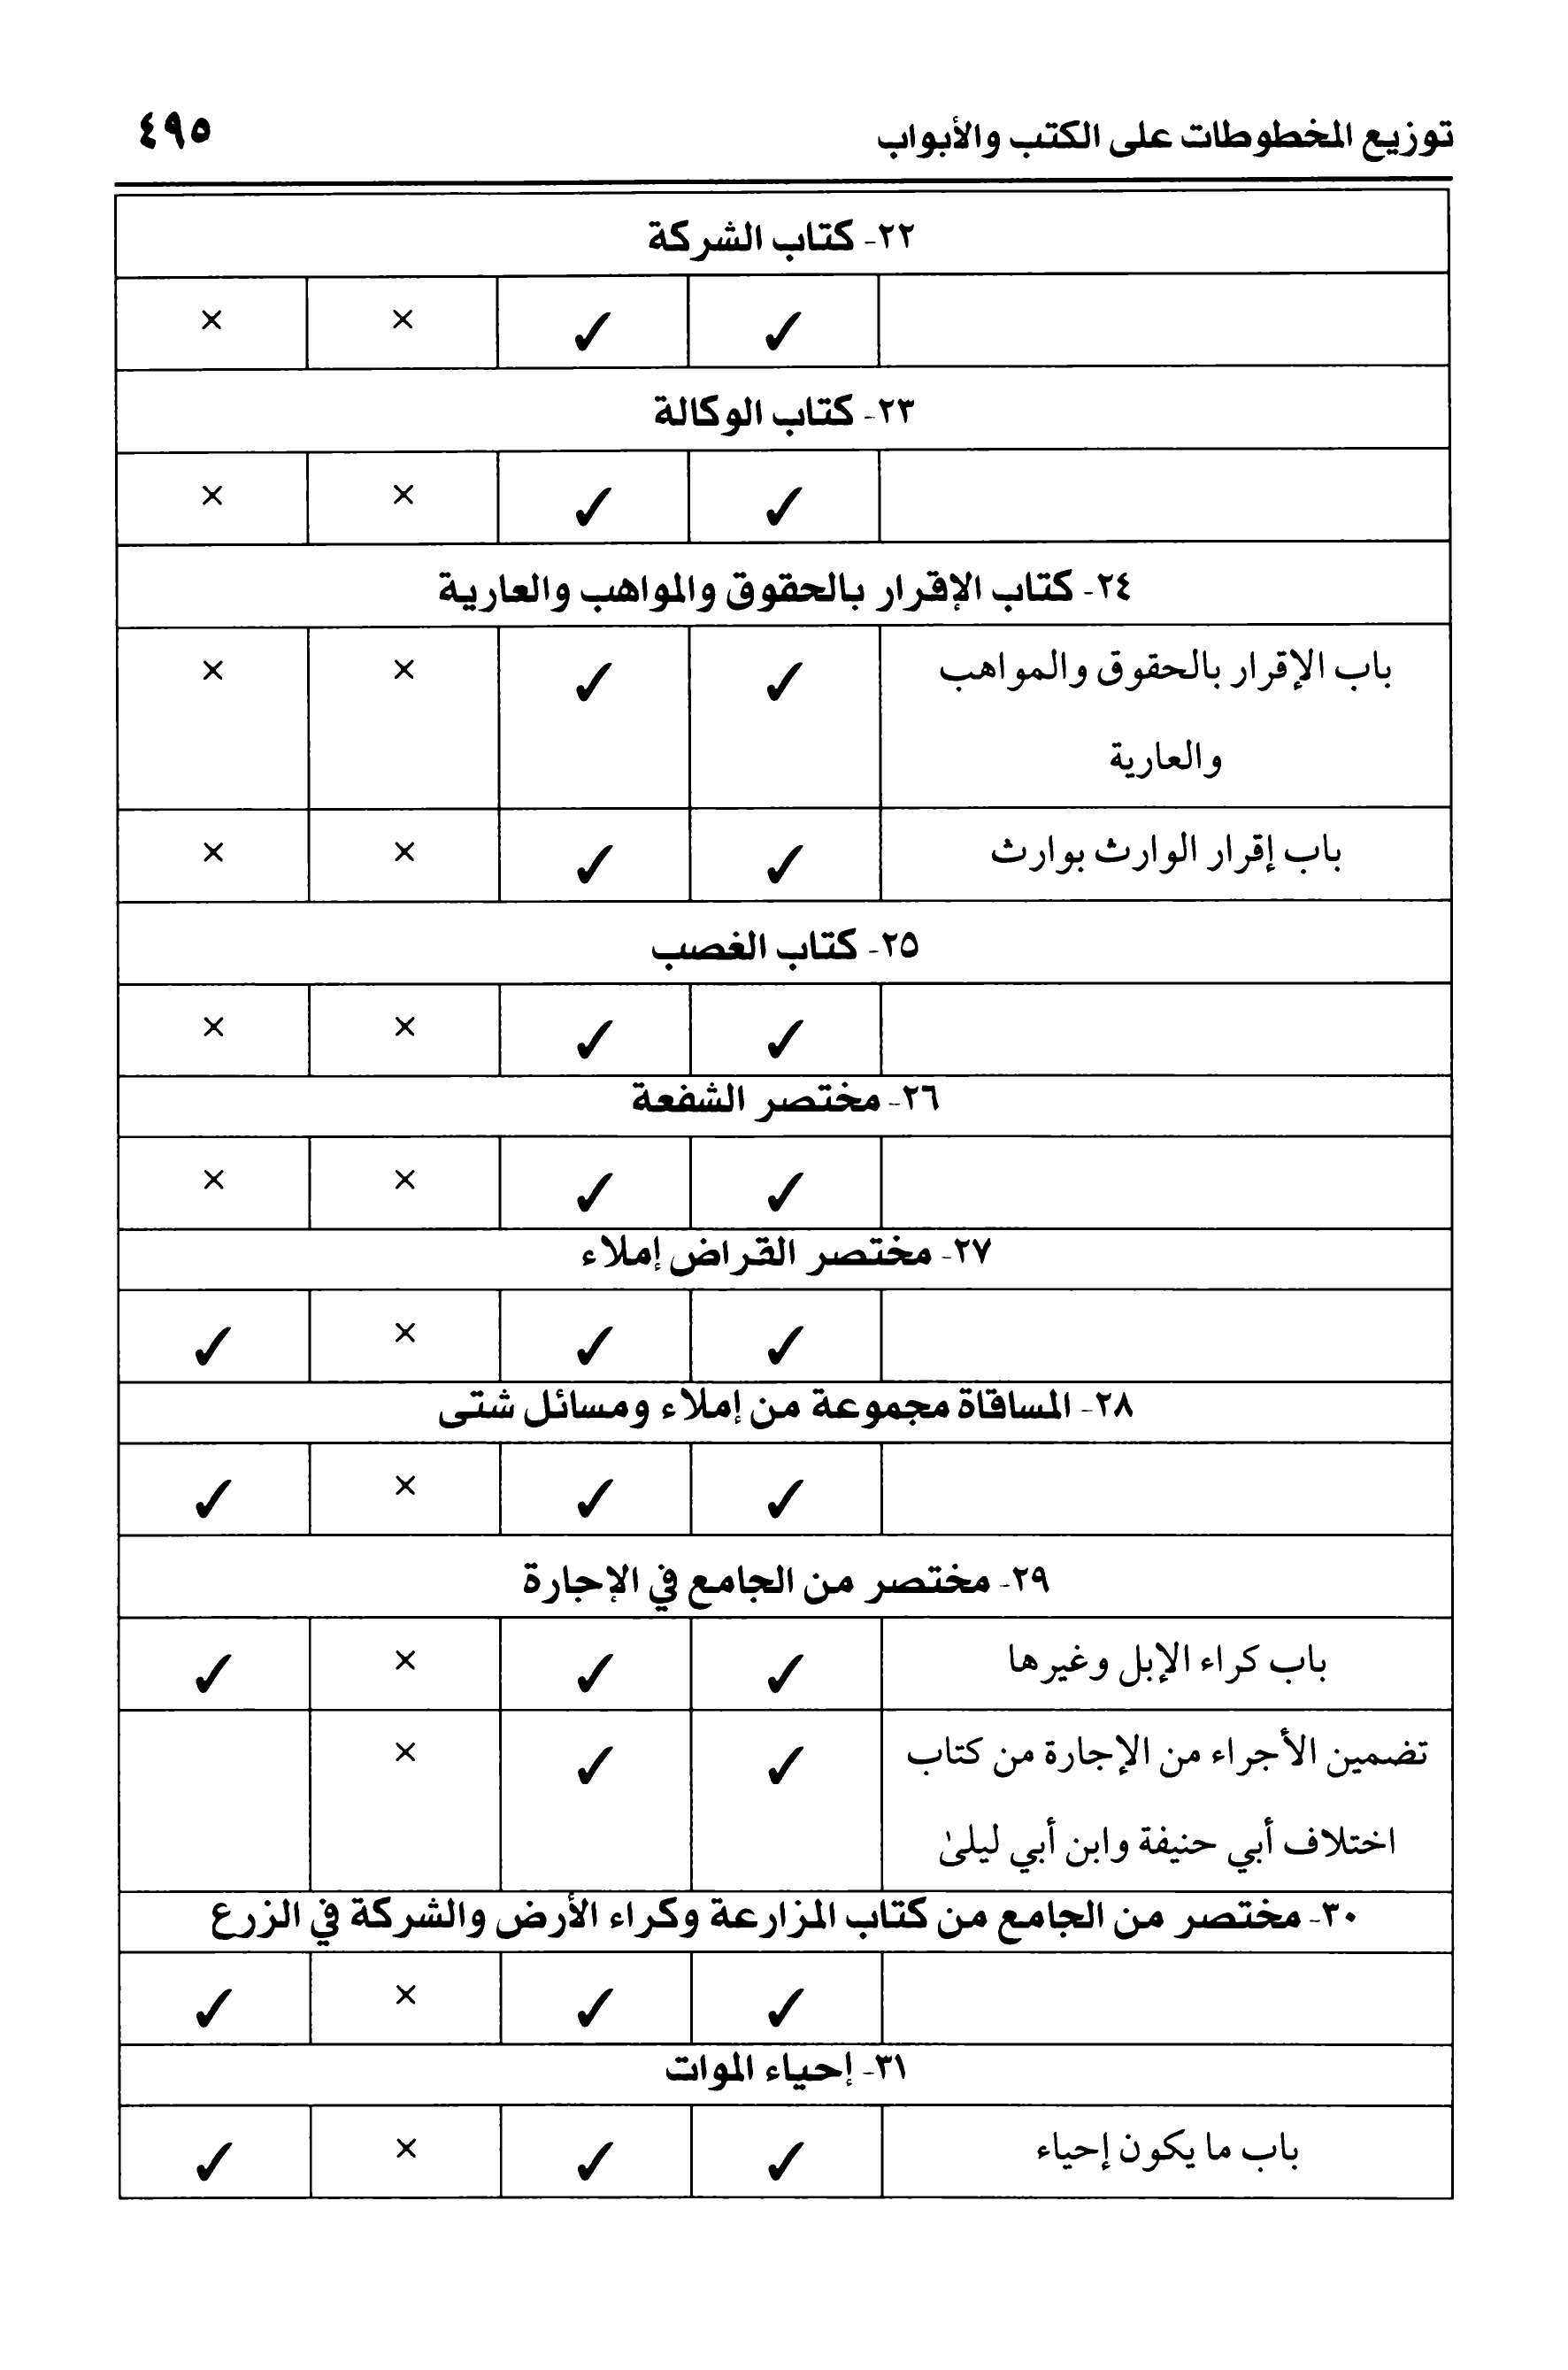 توزيع المخطوطات على الكتب والأبواب ٤٩٥
٢٢- كتاب الشركة
✓ ✓ × ×
٢٣- كتاب الوكالة
✓ ✓ × ×
٢٤- كتاب الإقرار بالحقوق والمواهب والعارية
باب الإقرار بالحقوق والمواهب ✓ ✓ × ×
والعارية
باب إقرار الوارث بوارث ✓ ✓ × ×
٢٥- كتاب الغصب
✓ ✓ × ×
٢٦- مختصر الشفعة
✓ ✓ × ×
٢٧- مختصر القراض إملاء
✓ ✓ × ✓
٢٨- المساقاة مجموعة من إملاء ومسائل شتى
✓ ✓ × ✓
٢٩- مختصر من الجامع في الإجارة
باب كراء الإبل وغيرها ✓ ✓ × ✓
تضمين الأجراء من الإجارة من كتاب ✓ ✓ ×
اختلاف أبي حنيفة وابن أبي ليلىٰ
٣٠- مختصر من الجامع من كتاب المزارعة وكراء الأرض والشركة في الزرع
✓ ✓ × ✓
٣١- إحياء الموات
باب ما يكون إحياء ✓ ✓ × ✓